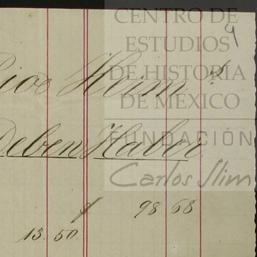 CENTRO DE
ESTUDIOS
DE HISTORIA
DE MÉXICO
FUNDACIÓN
Carlos Slim
9
Deben Haber
$ 98 68
13 50